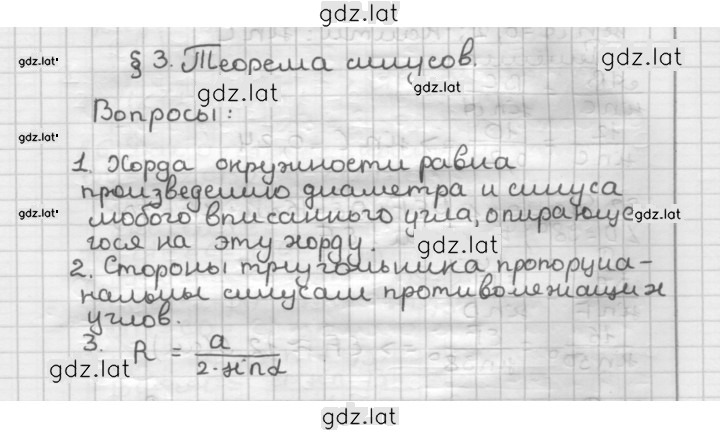 gdz.lat
gdz.lat
§ 3. Теорема синусов.
gdz.lat
gdz.lat
gdz.lat
Вопросы:
gdz.lat
1. Хорда окружности равна
произведению диаметра и синуса
gdz.lat
любого вписанного угла, опирающе
gdz.lat
гося на эту хорду.
gdz.lat
2. Стороны треугольника пропорциа-
нальны синусам противолежащих
углов.
3. R = a / 2·sinα
gdz.lat
gdz.lat